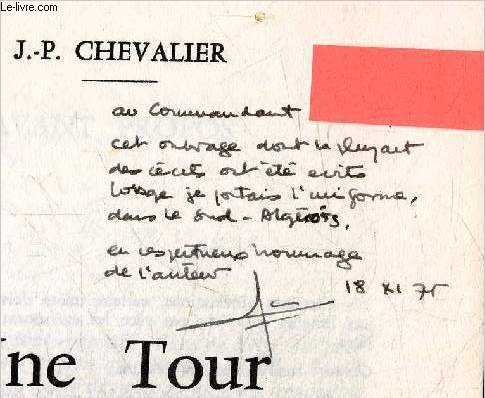 Le-livre.com
J.-P. CHEVALIER
au Commandant
cet ouvrage dont la plupart
des récits ont été écrits
lorsque je portais l'uniforme,
dans le Sud-Algérois,
en respectueux hommage
de l'auteur
18 XI 75
ne Tour